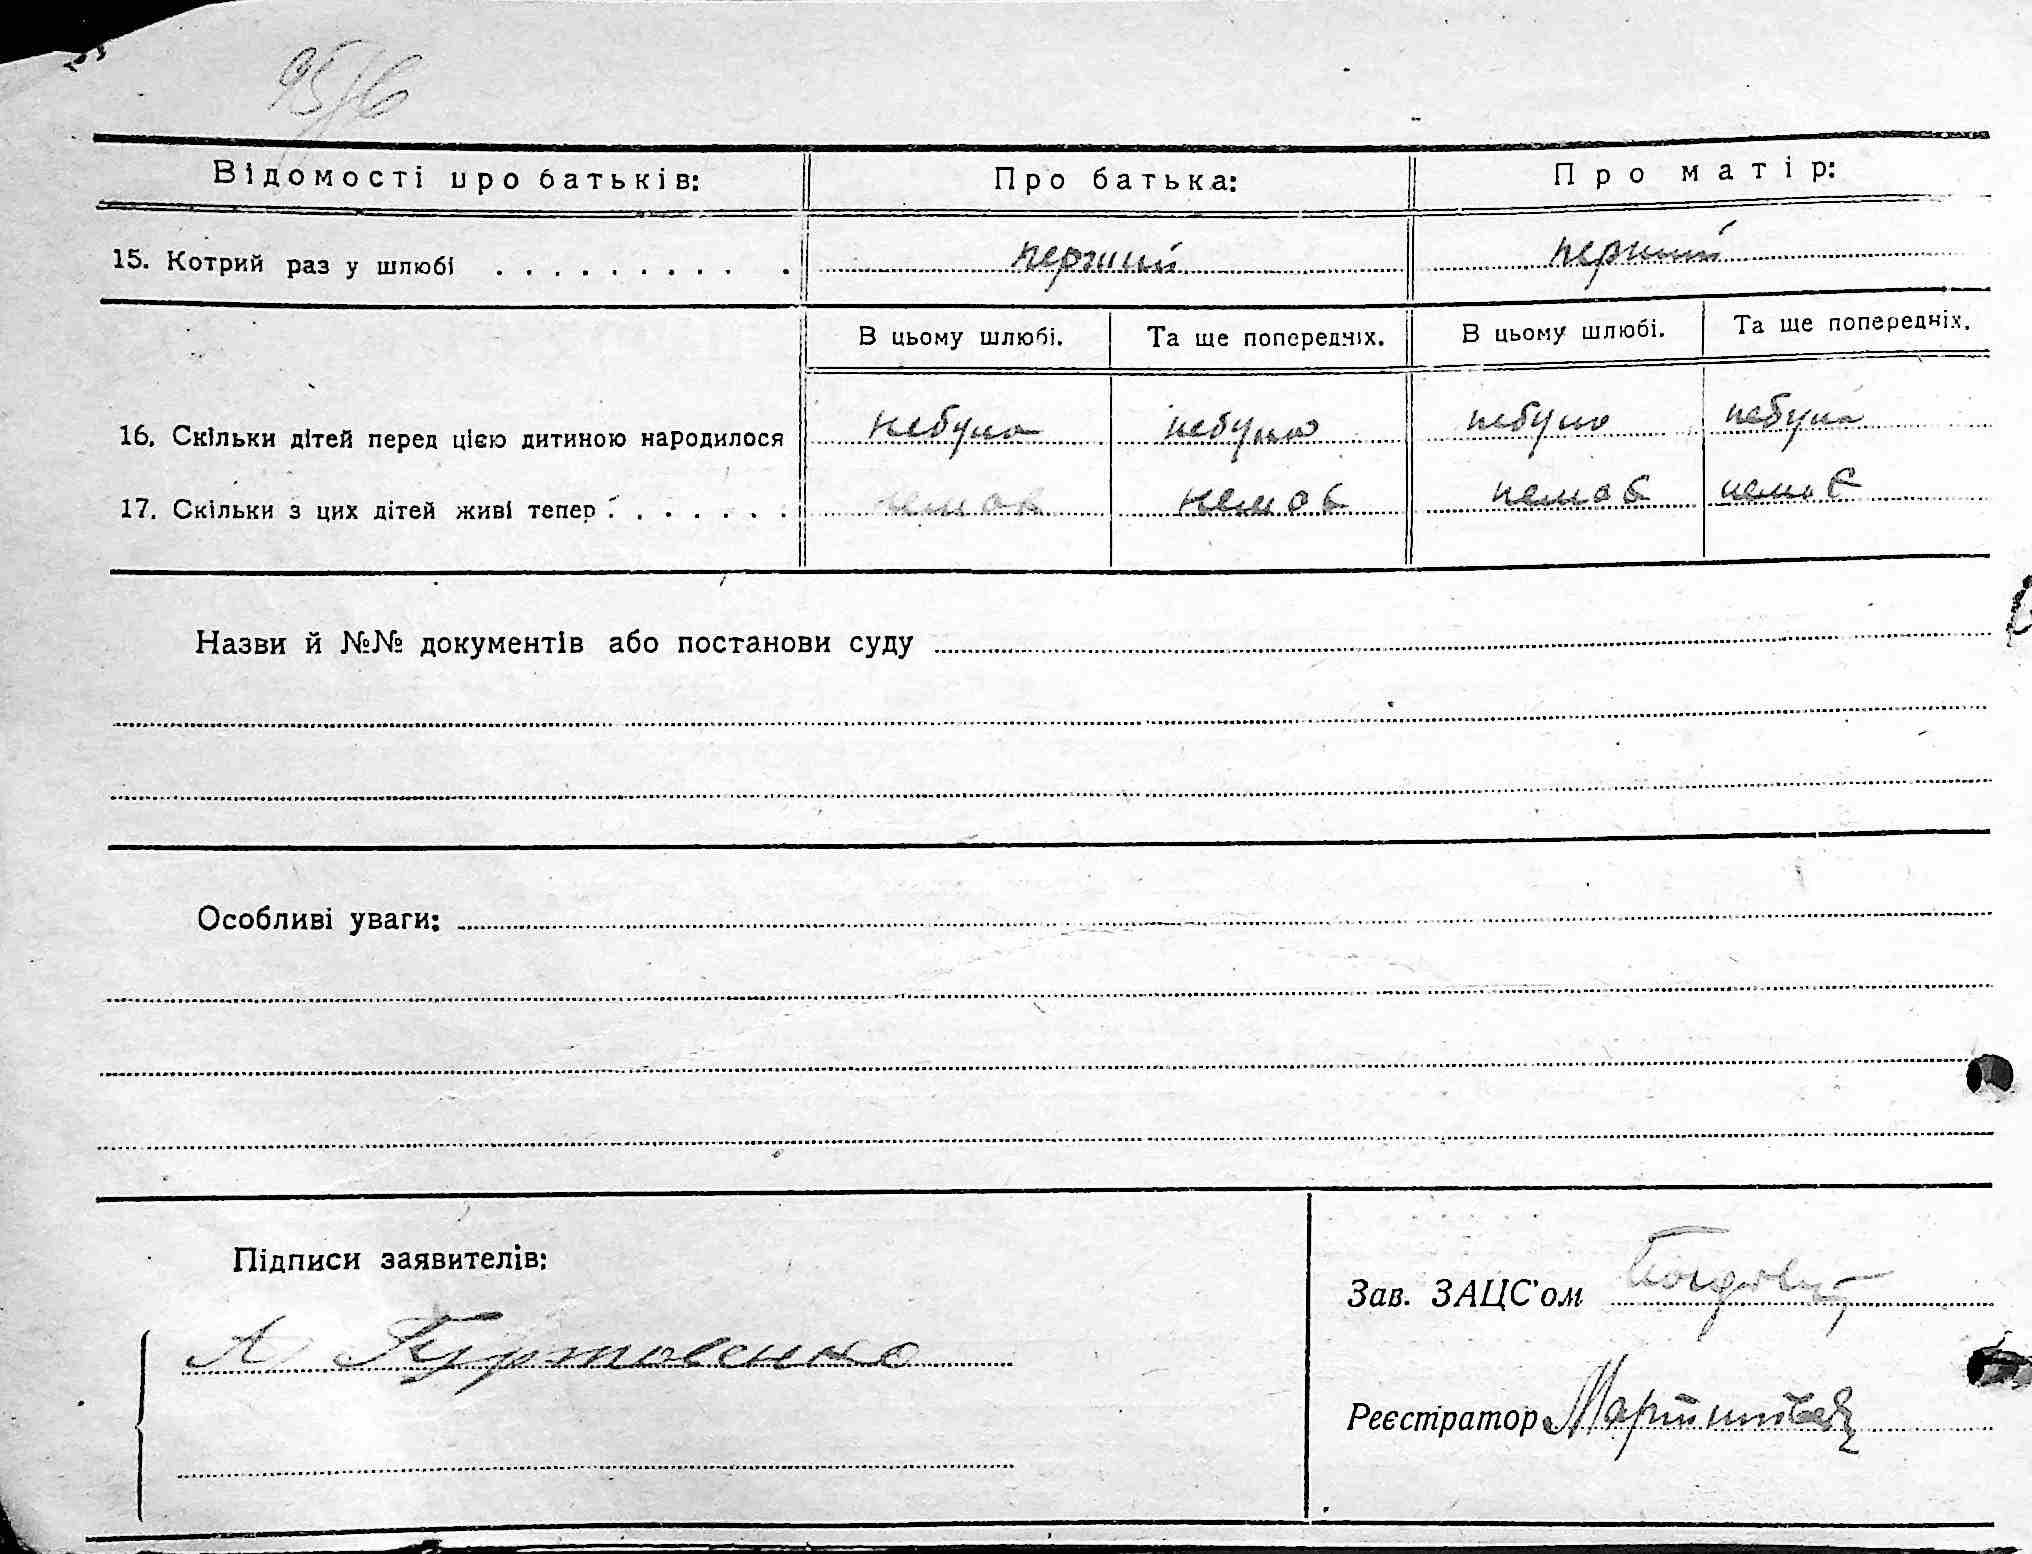 95/6
Відомості про батьків: Про батька: Про матір:
15. Котрий раз у шлюбі . . . . . . . . . . . перший перший
В цьому шлюбі. Та ще попередніх. В цьому шлюбі. Та ще попередніх.
16. Скільки дітей перед цією дитиною народилося небуло небуло небуло небуло
17. Скільки з цих дітей живі тепер . . . . . . . немає немає немає немає
Назви й №№ документів або постанови суду
Особливі уваги:
Підписи заявителів:
Зав. ЗАЦС'ом
А
Реєстратор